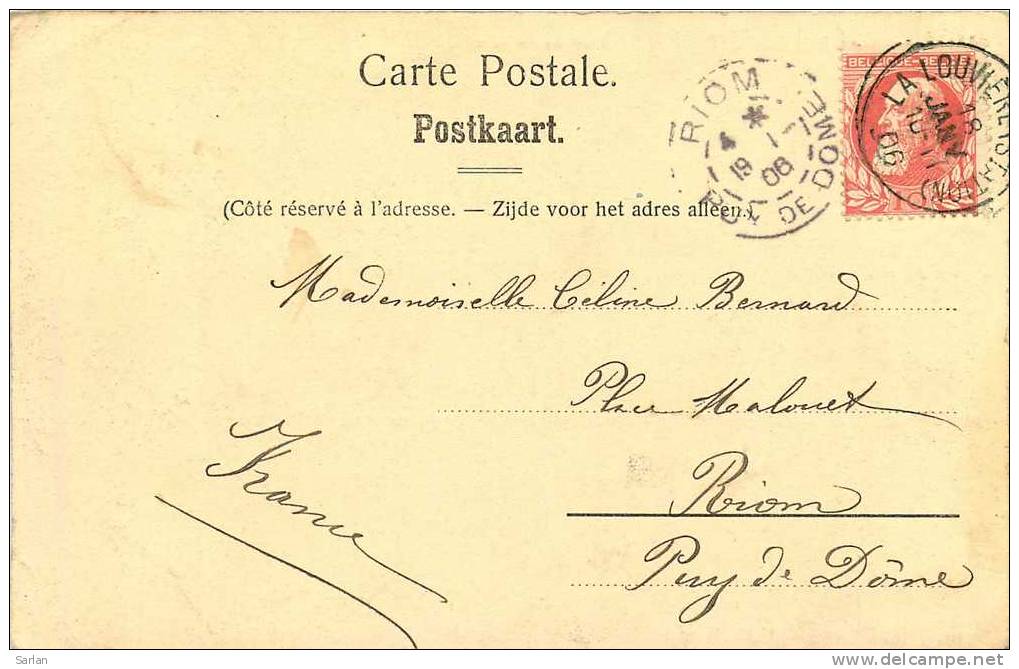 Carte Postale.
Postkaart.
(Côté réservé à l'adresse. — Zijde voor het adres alleen.)
RIOM
PUY DE DOME
4
19 - 1
06
BELGIQUE
LA LOUVIÈRE (STATION)
18
JANV
06
Mademoiselle Céline Bernard
Place Malouet
Riom
Puy de Dôme
France
Sarlan
delcampe.net